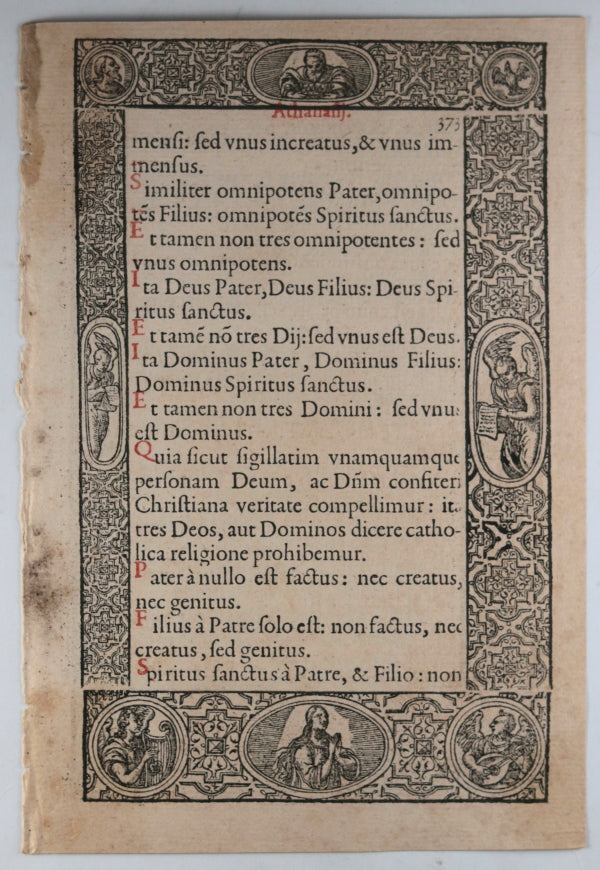 Athanasij.
373
mensi: sed vnus increatus, & vnus im-
mensus.
Similiter omnipotens Pater, omnipo-
tēs Filius: omnipotēs Spiritus sanctus.
Et tamen non tres omnipotentes: sed
vnus omnipotens.
Ita Deus Pater, Deus Filius: Deus Spi-
ritus sanctus.
Et tamē nō tres Dij: sed vnus est Deus.
Ita Dominus Pater, Dominus Filius:
Dominus Spiritus sanctus.
Et tamen non tres Domini: sed vnus
est Dominus.
Quia sicut sigillatim vnamquamque
personam Deum, ac Dñm confiteri
Christiana veritate compellimur: ita
tres Deos, aut Dominos dicere catho-
lica religione prohibemur.
Pater à nullo est factus: nec creatus,
nec genitus.
Filius à Patre solo est: non factus, nec
creatus, sed genitus.
Spiritus sanctus à Patre, & Filio: non